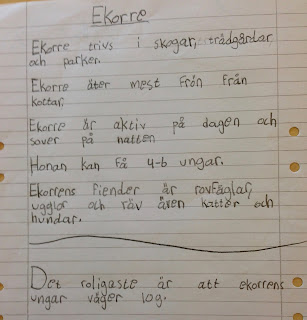 Ekorre
Ekorre trivs i skogar, trädgårdar
och parker.
Ekorre äter mest frön från
kottar.
Ekorre är aktiv på dagen och
sover på natten
Honan kan få 4-6 ungar.
Ekorrens fiender är rovfåglar,
ugglor och räv även kattor och
hundar.
Det roligaste är att ekorrens
ungar väger 10g.